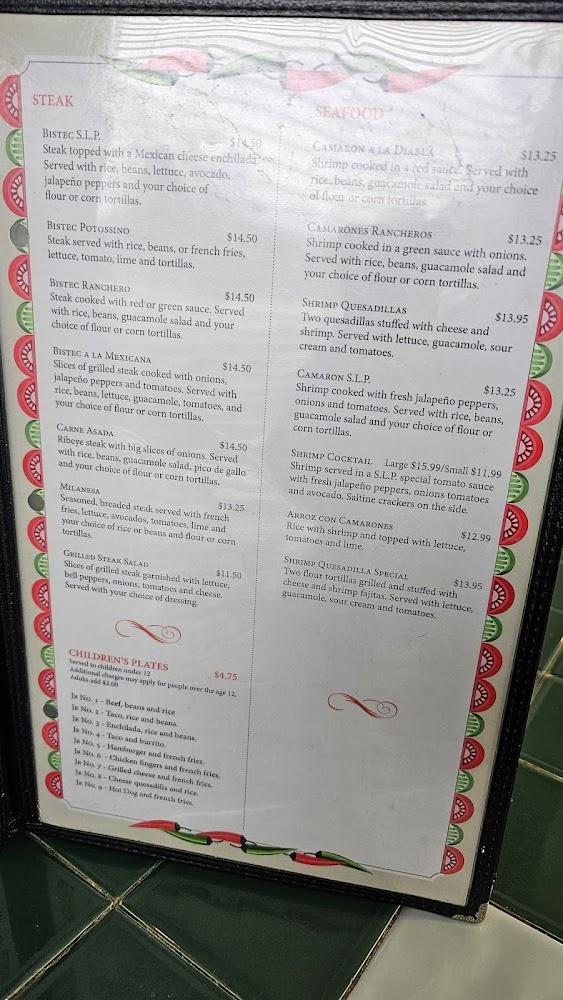 STEAK
BISTEC S.L.P. $14.50
Steak topped with a Mexican cheese enchilada
Served with rice, beans, lettuce, avocado,
jalapeño peppers and your choice of
flour or corn tortillas.
BISTEC POTOSSINO $14.50
Steak served with rice, beans, or french fries,
lettuce, tomato, lime and tortillas.
BISTEC RANCHERO $14.50
Steak cooked with red or green sauce. Served
with rice, beans, guacamole salad and your
choice of flour or corn tortillas.
BISTEC A LA MEXICANA $14.50
Slices of grilled steak cooked with onions,
jalapeño peppers and tomatoes. Served with
rice, beans, lettuce, guacamole, tomatoes, and
your choice of flour or corn tortillas.
CARNE ASADA $14.50
Ribeye steak with big slices of onions. Served
with rice, beans, guacamole salad, pico de gallo
and your choice of flour or corn tortillas.
MILANESA $13.25
Seasoned, breaded steak served with french
fries, lettuce, avocados, tomatoes, lime and
your choice of rice or beans and flour or corn
tortillas.
GRILLED STEAK SALAD $11.50
Slices of grilled steak garnished with lettuce,
bell peppers, onions, tomatoes and cheese.
Served with your choice of dressing.
CHILDREN'S PLATES $4.75
Served to children under 12
Additional charges may apply for people over the age 12,
Adults add $2.00
JR NO. 1 - Beef, beans and rice
JR NO. 2 - Taco, rice and beans.
JR NO. 3 - Enchilada, rice and beans.
JR NO. 4 - Taco and burrito.
JR NO. 5 - Hamburger and french fries.
JR NO. 6 - Chicken fingers and french fries.
JR NO. 7 - Grilled cheese and french fries.
JR NO. 8 - Cheese quesadilla and rice.
JR NO. 9 - Hot Dog and french fries.
SEAFOOD
CAMARON A LA DIABLA $13.25
Shrimp cooked in a red sauce. Served with
rice, beans, guacamole salad and your choice
of flour or corn tortillas.
CAMARONES RANCHEROS $13.25
Shrimp cooked in a green sauce with onions.
Served with rice, beans, guacamole salad and
your choice of flour or corn tortillas.
SHRIMP QUESADILLAS $13.95
Two quesadillas stuffed with cheese and
shrimp. Served with lettuce, guacamole, sour
cream and tomatoes.
CAMARON S.L.P. $13.25
Shrimp cooked with fresh jalapeño peppers,
onions and tomatoes. Served with rice, beans,
guacamole salad and your choice of flour or
corn tortillas.
SHRIMP COCKTAIL Large $15.99/Small $11.99
Shrimp served in a S.L.P. special tomato sauce
with fresh jalapeño peppers, onions tomatoes
and avocado. Saltine crackers on the side.
ARROZ CON CAMARONES $12.99
Rice with shrimp and topped with lettuce,
tomatoes and lime.
SHRIMP QUESADILLA SPECIAL $13.95
Two flour tortillas grilled and stuffed with
cheese and shrimp fajitas. Served with lettuce,
guacamole, sour cream and tomatoes.